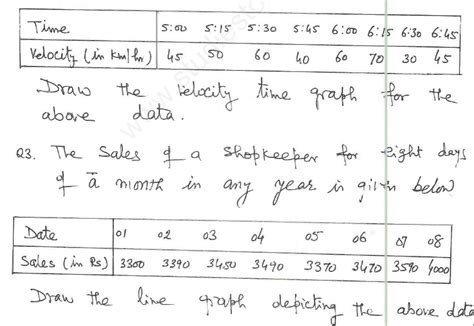 Time 5:00 5:15 5:30 5:45 6:00 6:15 6:30 6:45
Velocity (in Km/hr) 45 50 60 40 60 70 30 45
Draw the velocity time graph for the
above data.
Q3. The Sales of a Shopkeeper for eight days
of a month in any year is given below
Date 01 02 03 04 05 06 07 08
Sales (in Rs) 3300 3390 3450 3490 3370 3470 3590 4000
Draw the line graph depicting the above data